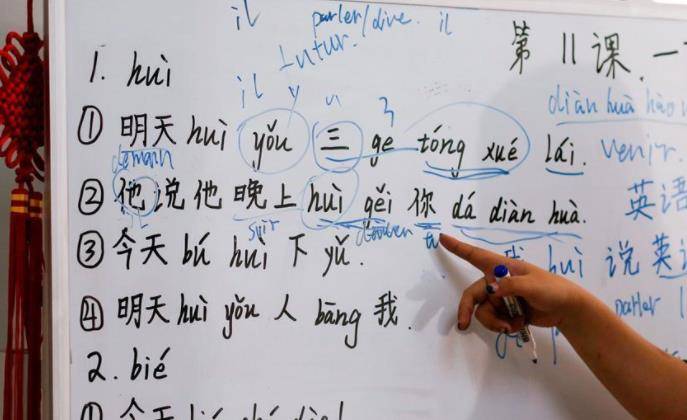 il parler/dire. il
Futur.
第 11 课. 一
1. huì
il y a 3
diàn huà hào
① 明天 huì yǒu 三 ge tóng xué lái. venir.
demain
② 他 说 他 晚上 huì gěi 你 dá diàn huà. 英语
il soir donner tu
③ 今天 bú huì 下 yǔ. 我 huì 说 英语
④ 明天 huì yǒu 人 bāng 我. parler
2. bié
① 今天